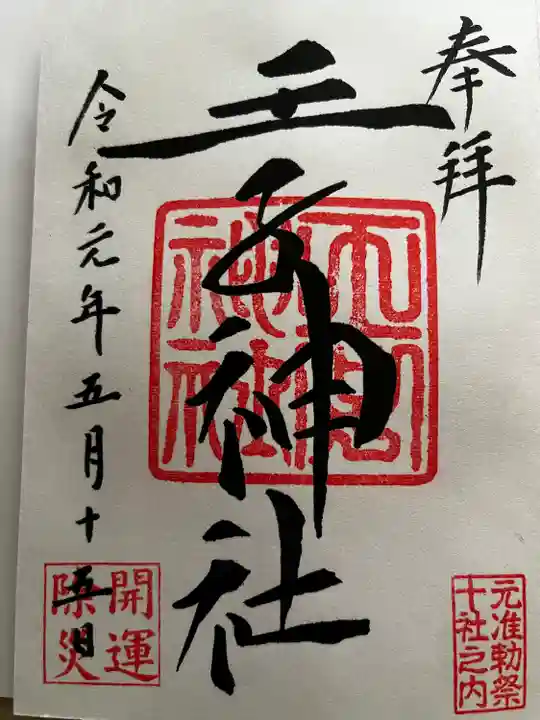 奉拝
王子神社
令和元年五月十五日
開運
除災
元准勅祭
十社之内